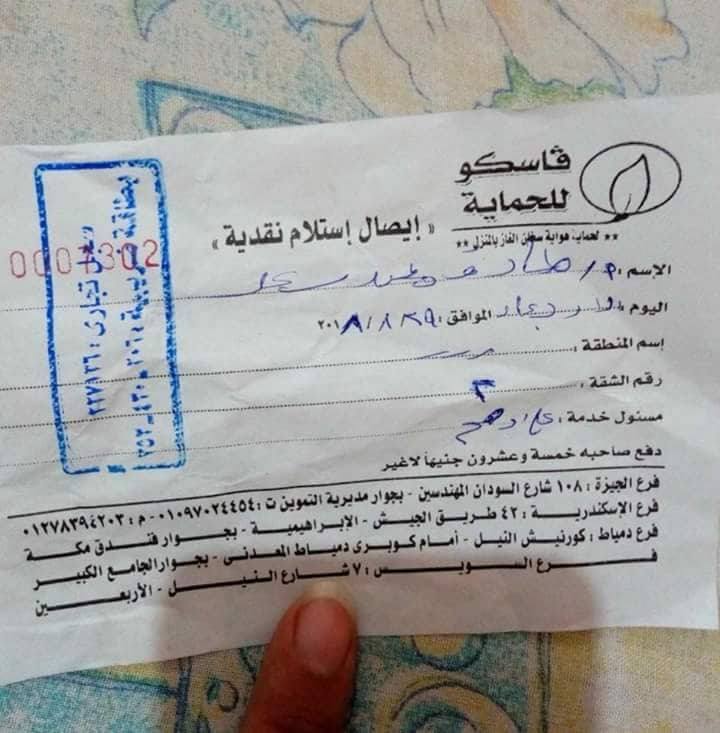 ڤاسكو
للحماية
** لحماية هواية سخان الغاز بالمنزل **
« إيصال إستلام نقدية »
0007302
الإسم : م/ طارق محمد سعد
اليوم : الاربعاء الموافق : ٢٠١٨/٨/٢٩
إسم المنطقة :
رقم الشقة : ٣
مسئول خدمة :
دفع صاحبه خمسة وعشرون جنيهاً لاغير
فرع الجيزة : ١٠٨ شارع السودان المهندسين - بجوار مديرية التموين ت : ٠١٠٩٧٠٢٤٤٥٤ - م : ٠١٢٧٨٣٩٤٢٠٣
فرع الإسكندرية : ٤٢ طريق الجيش - الإبراهيمية - بجوار فندق مكة
فرع دمياط : كورنيش النيل - أمام كوبرى دمياط المعدنى - بجوار الجامع الكبير
فرع السويس : ٧ شارع النيل - الأربعين
بطاقة ضريبية : ٢٠٦-٤٣٠-٢٥٢
سجل تجارى : ٢٢٧١٢٦